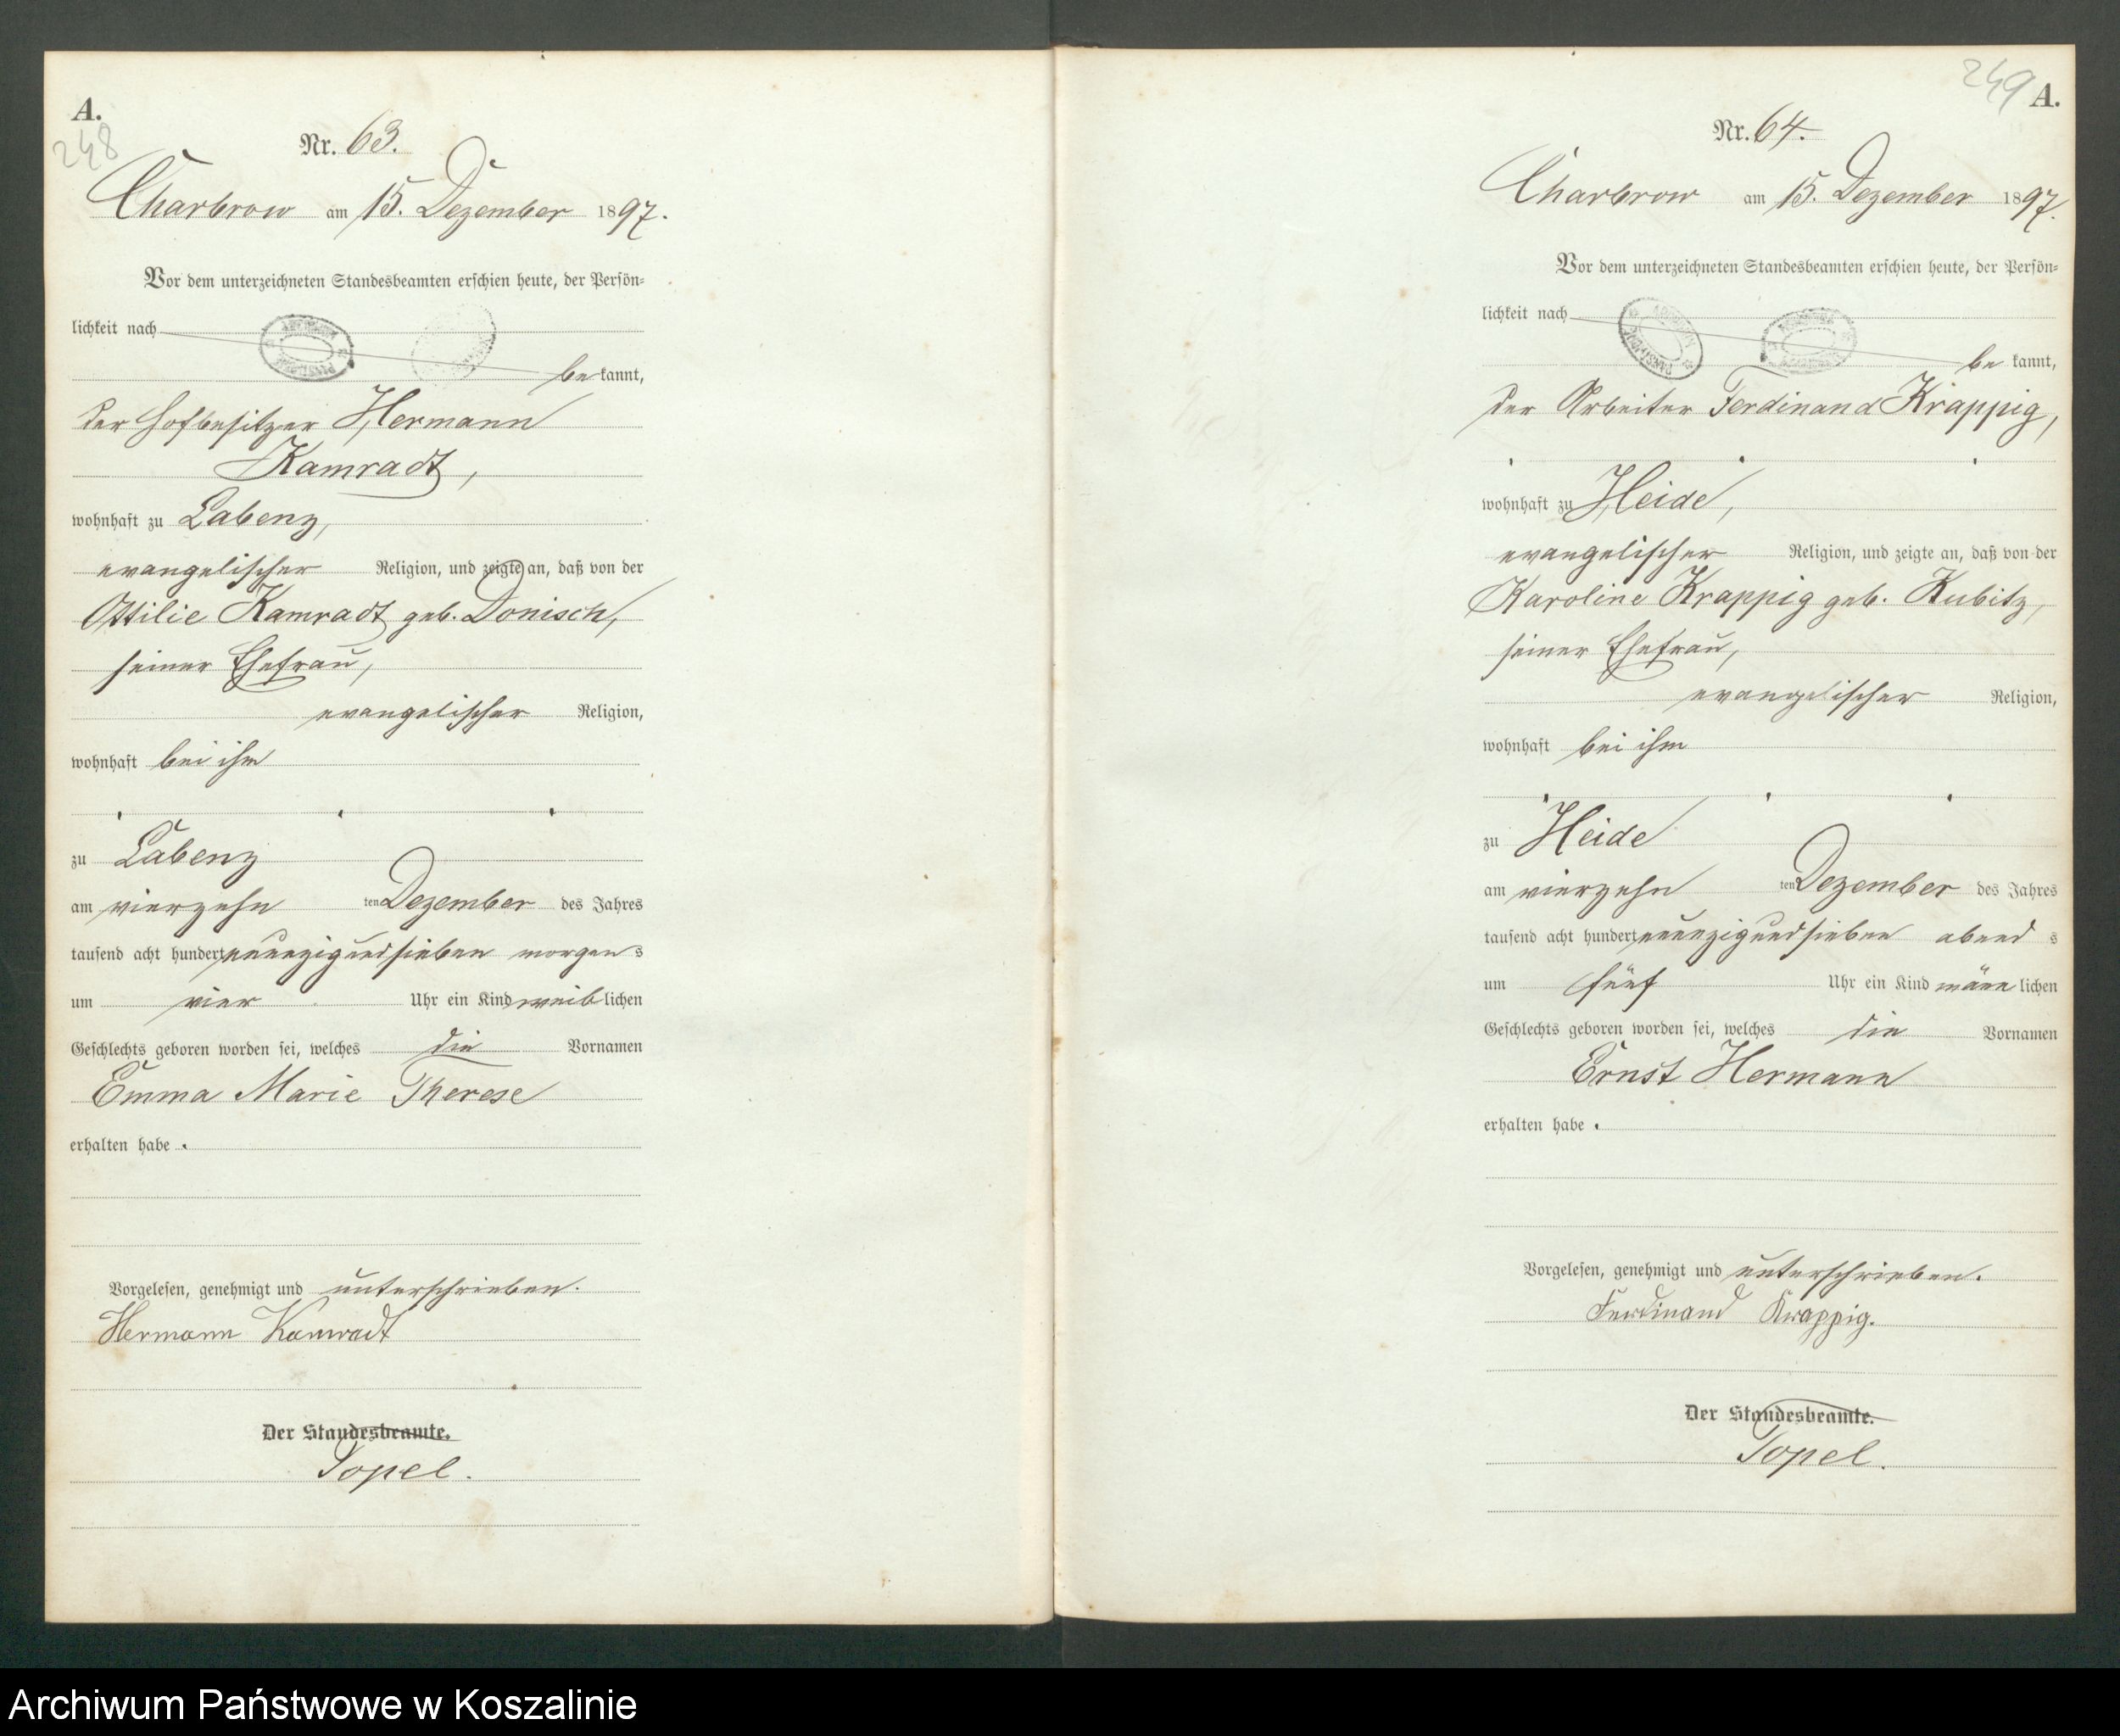 A.
248
Nr. 63.
Charbrow am 15. Dezember 1897.
Vor dem unterzeichneten Standesbeamten erschien heute, der Persön-
lichkeit nach
bekannt,
der Hofbesitzer Hermann
Kamradt,
wohnhaft zu Labenz,
evangelischer Religion, und zeigte an, daß von der
Ottilie Kamradt geb. Donisch,
seiner Ehefrau,
evangelischer Religion,
wohnhaft bei ihm
zu Labenz
am vierzehn ten Dezember des Jahres
tausend acht hundert neunzigundsieben morgens
um vier Uhr ein Kind weiblichen
Geschlechts geboren worden sei, welches die Vornamen
Emma Marie Therese
erhalten habe.
Vorgelesen, genehmigt und unterschrieben.
Hermann Kamradt
Der Standesbeamte.
Topel.
249
A.
Nr. 64.
Charbrow am 15. Dezember 1897.
Vor dem unterzeichneten Standesbeamten erschien heute, der Persön-
lichkeit nach
bekannt,
der Arbeiter Ferdinand Krappig,
wohnhaft zu Heide,
evangelischer Religion, und zeigte an, daß von der
Karoline Krappig geb. Kubitz,
seiner Ehefrau,
evangelischer Religion,
wohnhaft bei ihm
zu Heide
am vierzehn ten Dezember des Jahres
tausend acht hundert neunzigundsieben abends
um fünf Uhr ein Kind männlichen
Geschlechts geboren worden sei, welches die Vornamen
Ernst Hermann
erhalten habe.
Vorgelesen, genehmigt und unterschrieben.
Ferdinand Krappig.
Der Standesbeamte.
Topel.
Archiwum Państwowe w Koszalinie